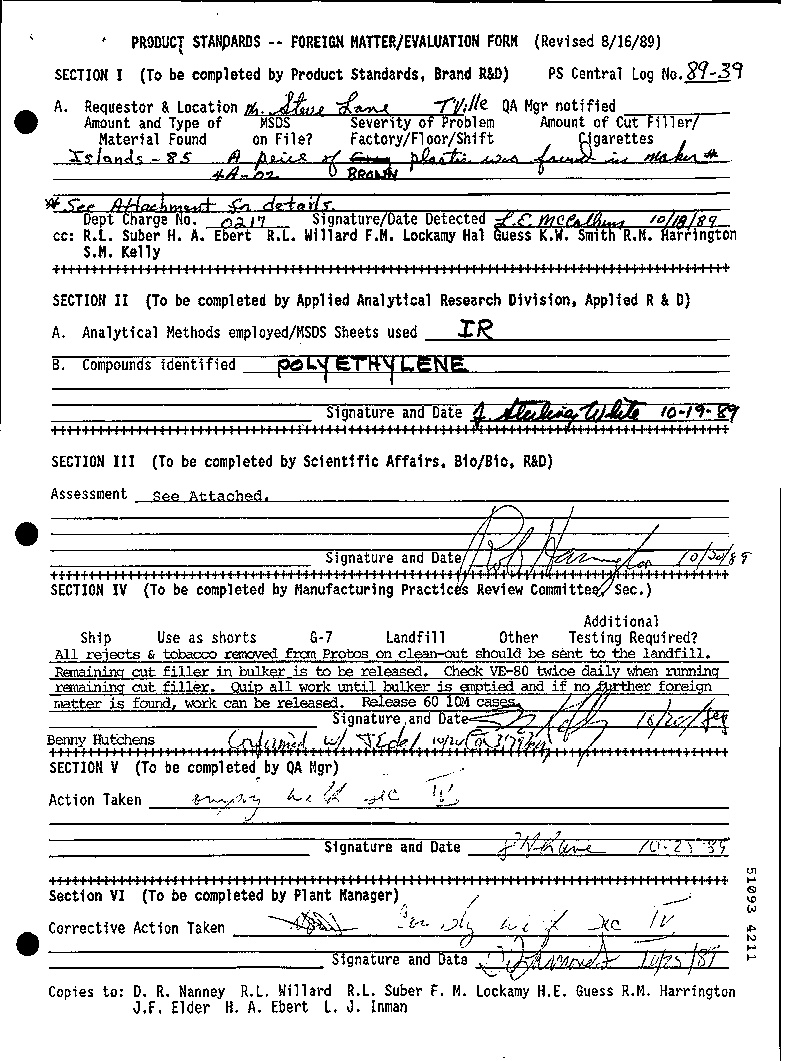 PRODUCT STANDARDS -- FOREIGN MATTER/EVALUATION FORM (Revised 8/16/89)
SECTION I (To be completed by Product Standards, Brand R&D) PS Central Log No. 89-39
A. Requestor & Location Mr. Steve Lane TVille QA Mgr notified
Amount and Type of MSDS Severity of Problem Amount of Cut Filler/
Material Found on File? Factory/Floor/Shift Cigarettes
Islands - 85 A peice of plastic was found in maker #
#A-02 BROWN
* See Attachment for details.
Dept Charge No. 0217 Signature/Date Detected L.E. McCollum 10/18/89
cc: R.L. Suber H. A. Ebert R.L. Willard F.M. Lockamy Hal Guess K.W. Smith R.M. Harrington
S.M. Kelly
SECTION II (To be completed by Applied Analytical Research Division, Applied R & D)
A. Analytical Methods employed/MSDS Sheets used IR
B. Compounds identified POLYETHYLENE
Signature and Date J Sterling White 10-19-89
SECTION III (To be completed by Scientific Affairs, Bio/Bio, R&D)
Assessment See Attached.
Signature and Date Harrington 10/20/89
SECTION IV (To be completed by Manufacturing Practices Review Committee, Sec.)
Additional
Ship Use as shorts G-7 Landfill Other Testing Required?
All rejects & tobacco removed from Protos on clean-out should be sent to the landfill.
Remaining cut filler in bulker is to be released. Check VE-80 twice daily when running
remaining cut filler. Quip all work until bulker is emptied and if no further foreign
matter is found, work can be released. Release 60 10M cases.
Signature and Date 10/20/89
Benny Hutchens Confirmed w/ J Edel 10/20
SECTION V (To be completed by QA Mgr)
Action Taken comply with sec IV
Signature and Date Lane 10-25-89
Section VI (To be completed by Plant Manager)
Corrective Action Taken Comply with sec IV
Signature and Date 10/25/89
Copies to: D. R. Nanney R.L. Willard R.L. Suber F. M. Lockamy H.E. Guess R.M. Harrington
J.F. Elder H. A. Ebert L. J. Inman
51093 4211